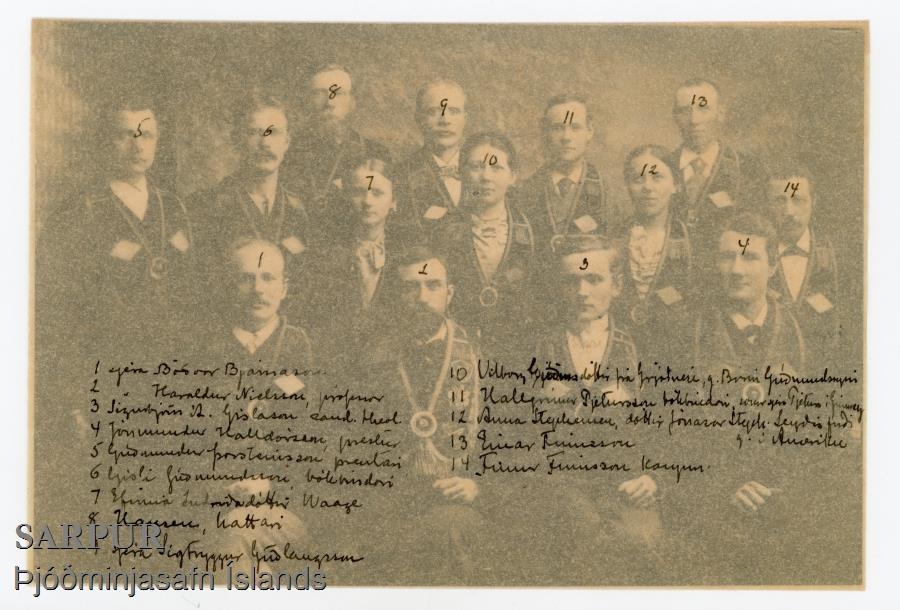 5
6
8
9
11
13
7
10
12
14
1
2
3
4
1 séra Böðvar Bjarnason
2 Haraldur Níelsson, prófessor
3 Sigurbjörn Á. Gíslason cand. theol.
4 Jónmundur Halldórsson, prestur
5 Guðmundur Þorsteinsson, prentari
6 Gísli Guðmundsson, bókbindari
7 Efimía Indriðadóttir Waage
8 Hansen, hattari
9 séra Sigtryggur Guðlaugsson
10 Vilborg dóttir frá g. Guðmundssyni
11 Hallgrímur Pjetursson bókbindari,
12 Anna Stephensen, dóttir Jónasar Steph. Seyðisfirði
g. í Ameriku
13 Einar Finnsson
14 Finnur Finnsson kaupm.
SARPUR
Þjóðminjasafn Íslands